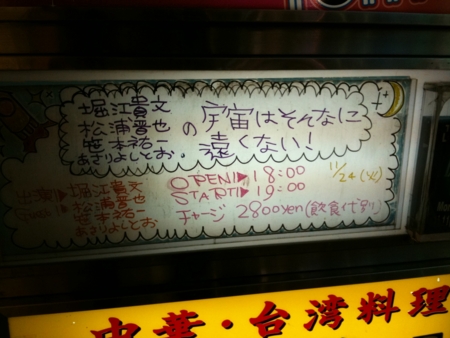 堀江貴文
松浦晋也
笹本祐一
あさりよしとお
の 宇宙はそんなに
遠くない!
出演▶堀江貴文
松浦晋也
笹本祐一
あさりよしとお
OPEN▶18:00
START▶19:00
チャージ 2800yen(飲食代別)
11/24(火)
中華・台湾料理